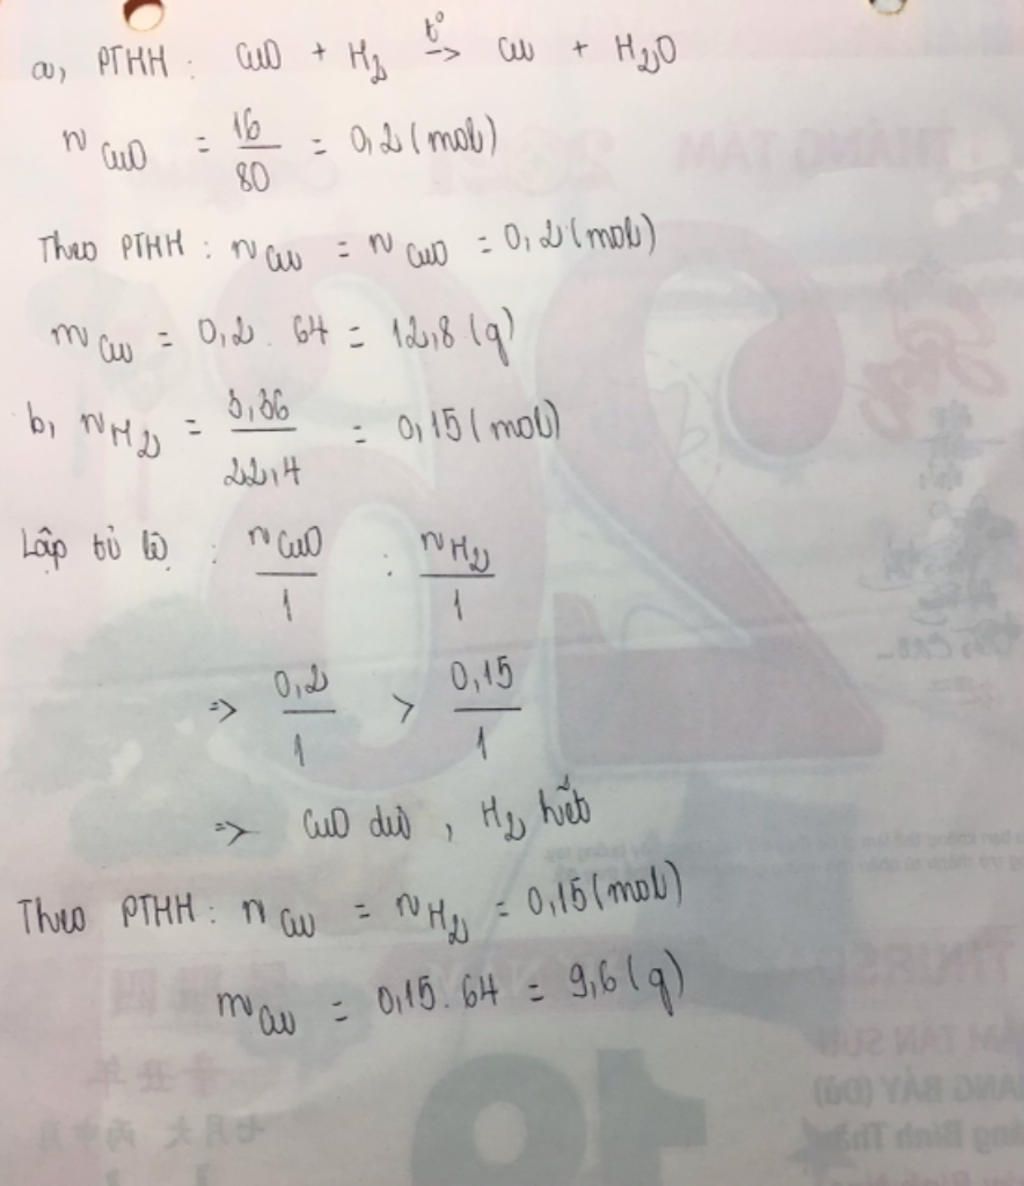 a, PTHH : CuO + H₂ t° → Cu + H₂O
n CuO = 16/80 = 0,2 (mol)
Theo PTHH : n Cu = n CuO = 0,2 (mol)
m Cu = 0,2 . 64 = 12,8 (g)
b, n H₂ = 3,36/22,4 = 0,15 (mol)
Lập tỉ lệ : n CuO/1 : n H₂/1
=> 0,2/1 > 0,15/1
=> CuO dư , H₂ hết
Theo PTHH : n Cu = n H₂ = 0,15 (mol)
m Cu = 0,15 . 64 = 9,6 (g)
THÁNG TÁM
26
辛丑年
七月大 丙申月